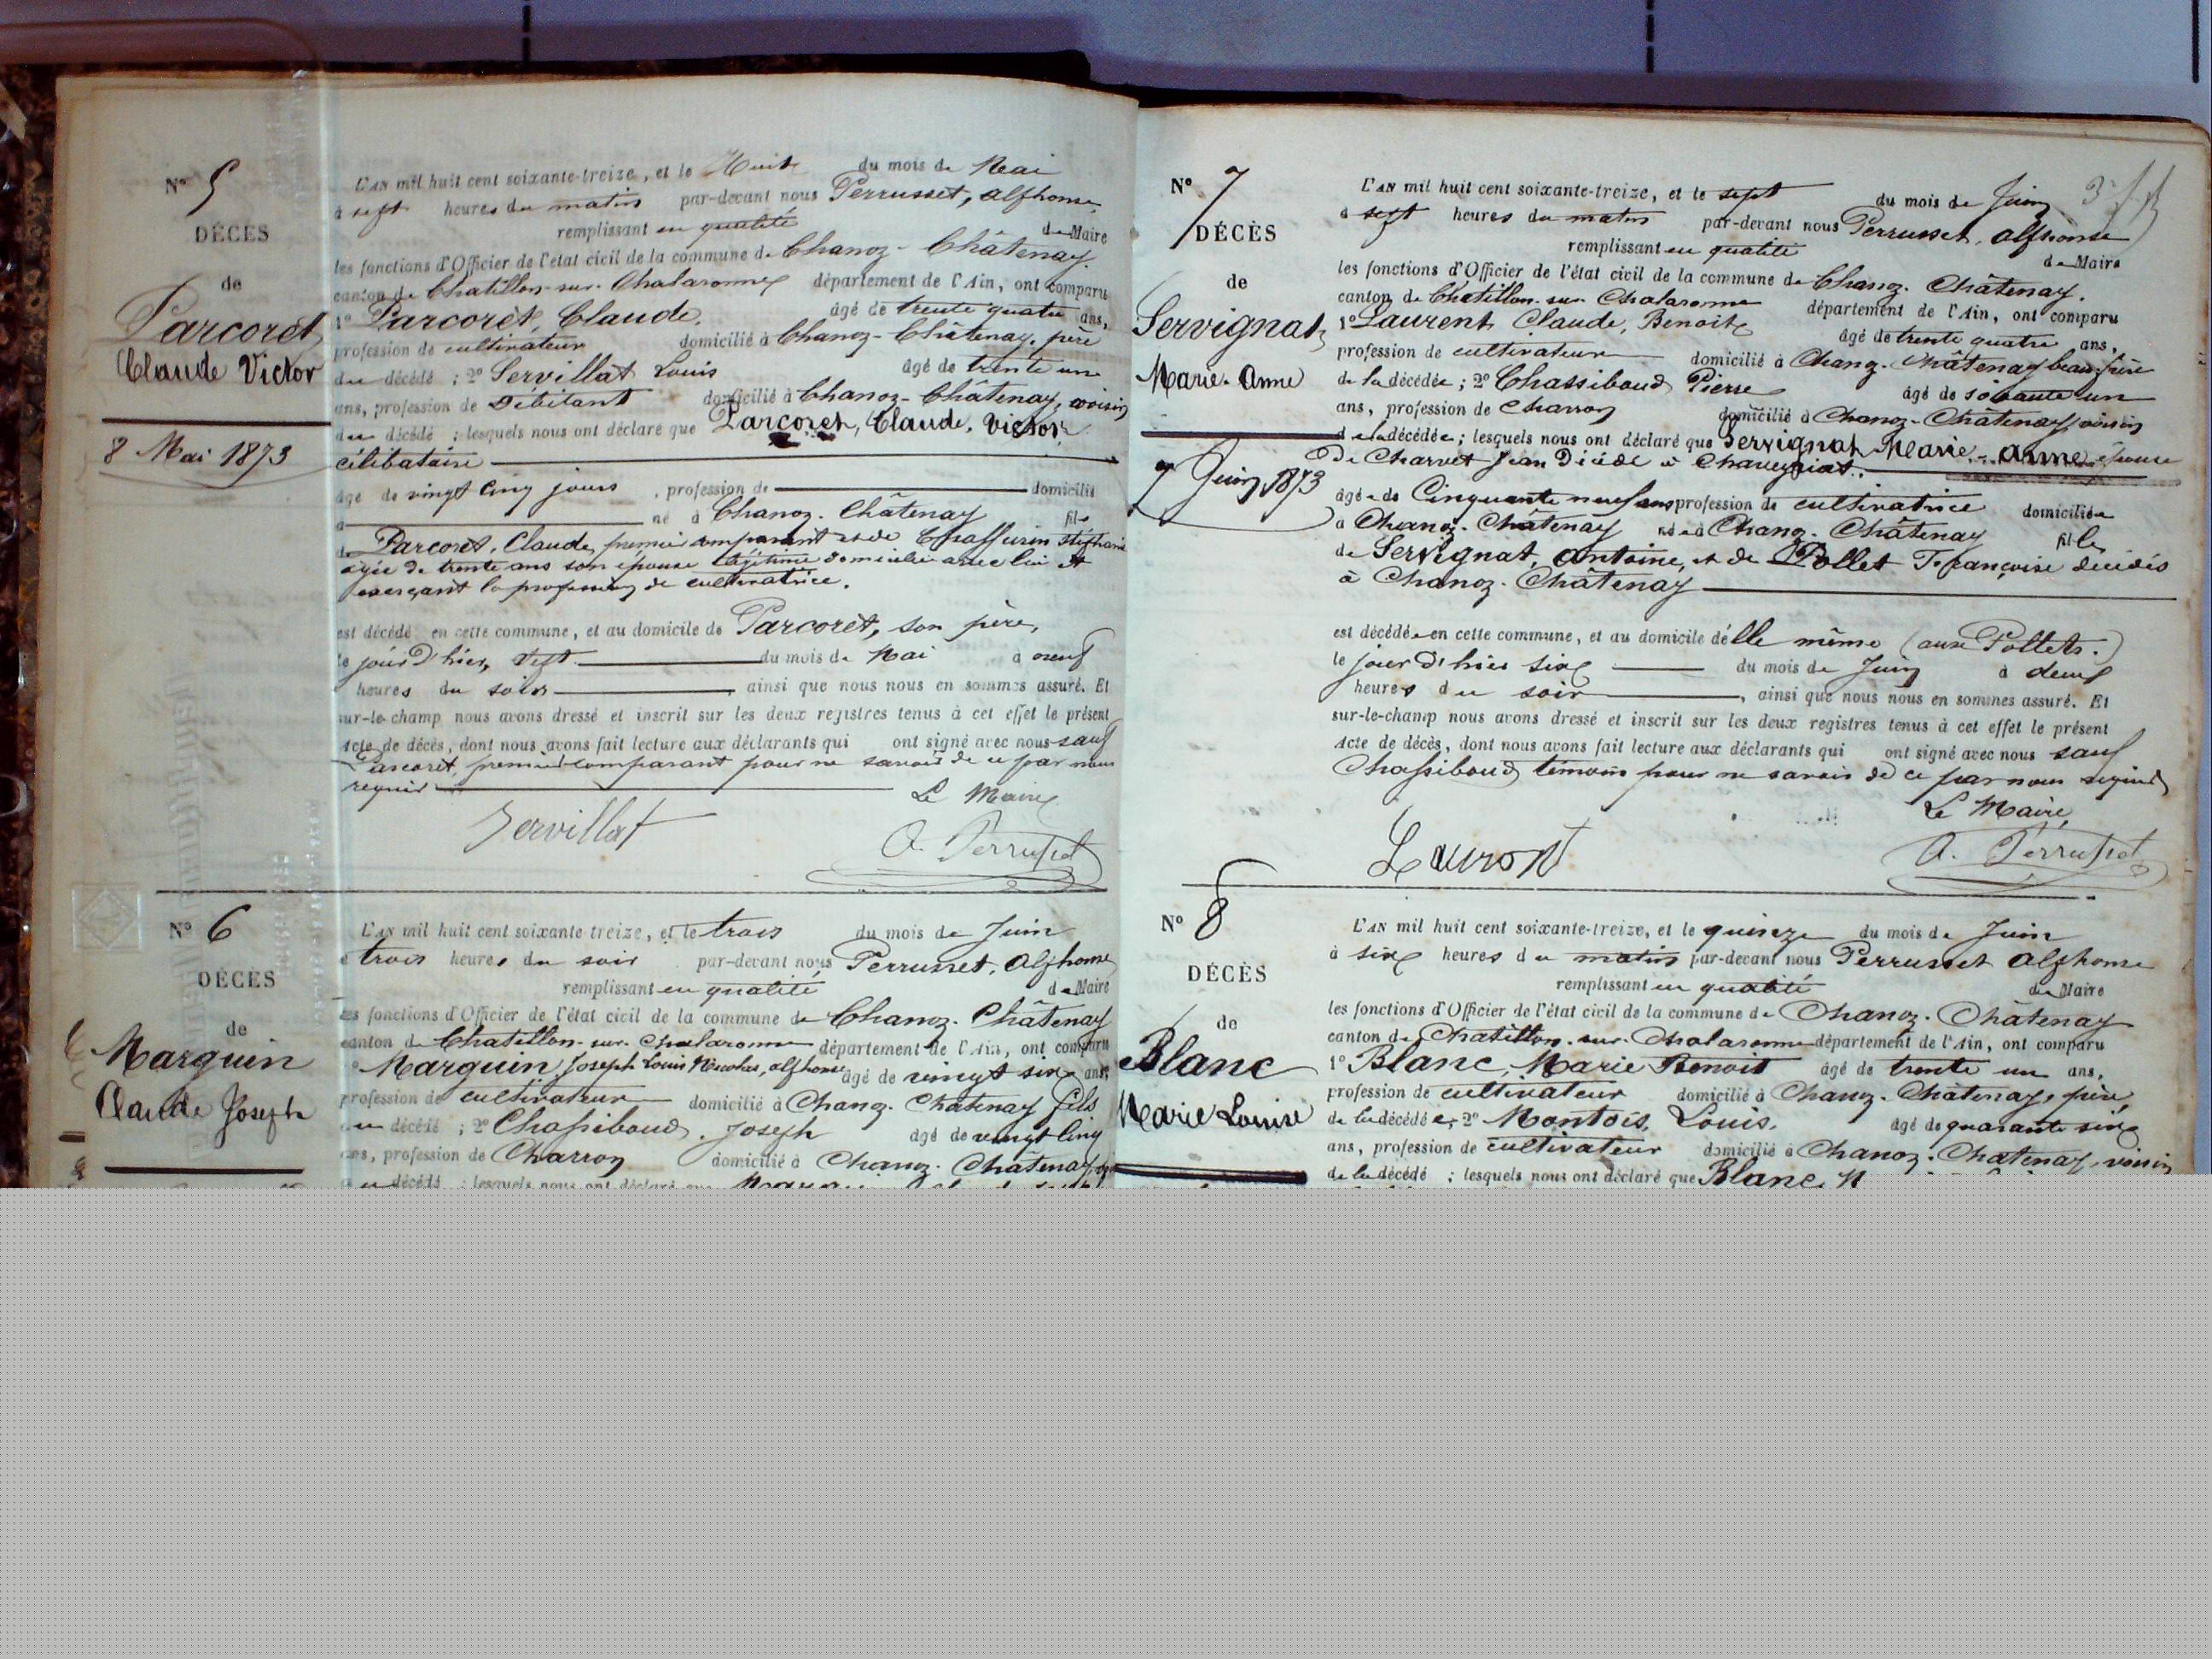 N° 5
DÉCÈS
de
Parcorêt
Claude Victor
8 Mai 1873
L'AN mil huit cent soixante-treize, et le Huit du mois de Mai
à sept heures du matin par-devant nous Perrusset, Alphonse,
remplissant en qualité de Maire
les fonctions d'Officier de l'état civil de la commune de Chanoz-Châtenay.
canton de Chatillon-sur-Chalaronne département de l'Ain, ont comparu
1° Parcorêt, Claude, âgé de trente quatre ans,
profession de cultivateur domicilié à Chanoz-Châtenay, père
du décédé ; 2° Servillat Louis âgé de trente un
ans, profession de Débitant domicilié à Chanoz-Châtenay, voisin
du décédé ; lesquels nous ont déclaré que Parcoret, Claude, Victor
célibataire
âgé de vingt cinq jours, profession de domicilié
à né à Chanoz-Châtenay fils
de Parcorêt, Claude, premier comparant et de Stéphanie
agée de trente ans son épouse légitime domiciliée avec lui et
exerçant la profession de cultivatrice.
est décédé en cette commune, et au domicile de Parcorêt, son père,
le jour d'hier, sept du mois de Mai à neuf
heures du soir ainsi que nous nous en sommes assuré. Et
sur-le-champ nous avons dressé et inscrit sur les deux registres tenus à cet effet le présent
acte de décès, dont nous avons fait lecture aux déclarants qui ont signé avec nous sauf
Parcorêt, premier comparant pour ne savoir de ce par nous
requis
Le Maire
Servillat A. Perrusset
N° 6
DÉCÈS
de
Marguin
Claude Joseph
L'AN mil huit cent soixante-treize, et le trois du mois de Juin
à trois heures du soir par-devant nous Perrusset, Alphonse
remplissant en qualité de Maire
les fonctions d'Officier de l'état civil de la commune de Chanoz-Châtenay
canton de Chatillon-sur-Chalaronne département de l'Ain, ont comparu
1° Marguin, Joseph Louis Nicolas, alphonse âgé de vingt six ans,
profession de cultivateur domicilié à Chanoz-Châtenay fils
du décédé ; 2° Chassiboud, Joseph âgé de vingt cinq
ans, profession de Charron domicilié à Chanoz-Châtenay
du décédé ; lesquels nous ont déclaré que
N° 7
DÉCÈS
de
Servignat
Marie-Anne
7 Juin 1873
L'AN mil huit cent soixante-treize, et le sept du mois de Juin
à sept heures du matin par-devant nous Perrusset, Alphonse
remplissant en qualité de Maire
les fonctions d'Officier de l'état civil de la commune de Chanoz-Châtenay.
canton de Chatillon-sur-Chalaronne département de l'Ain, ont comparu
1° Laurent Claude, Benoit âgé de trente quatre ans,
profession de cultivateur domicilié à Chanoz-Châtenay beau-frère
de la décédée ; 2° Chassiboud Pierre âgé de soixante un
ans, profession de Charron domicilié à Chanoz-Châtenay voisin
de la décédée ; lesquels nous ont déclaré que Servignat Marie-Anne épouse
De Charvet Jean Décédé à Chaveyriat.
âgée de Cinquante neuf ans profession de cultivatrice domiciliée
à Chanoz-Châtenay née à Chanoz-Châtenay fille
de Servignat, Antoine, et de Pollet Françoise décédés
à Chanoz-Châtenay
est décédée en cette commune, et au domicile d'elle même (aux Pollets.)
le jour d'hier six du mois de Juin à deux
heures du soir, ainsi que nous nous en sommes assuré. Et
sur-le-champ nous avons dressé et inscrit sur les deux registres tenus à cet effet le présent
acte de décès, dont nous avons fait lecture aux déclarants qui ont signé avec nous sauf
Chassiboud témoin pour ne savoir de ce par nous requis
Le Maire
Lauront A. Perrusset
N° 8
DÉCÈS
de
Blanc
Marie Louise
L'AN mil huit cent soixante-treize, et le quinze du mois de Juin
à six heures du matin par-devant nous Perrusset Alphonse
remplissant en qualité de Maire
les fonctions d'Officier de l'état civil de la commune de Chanoz-Châtenay
canton de Chatillon-sur-Chalaronne département de l'Ain, ont comparu
1° Blanc, Marie Benoit âgé de trente un ans,
profession de cultivateur domicilié à Chanoz-Châtenay, père
de la décédée, 2° Montois, Louis, âgé de quarante six
ans, profession de cultivateur domicilié à Chanoz-Châtenay, voisin
de la décédé ; lesquels nous ont déclaré que Blanc,